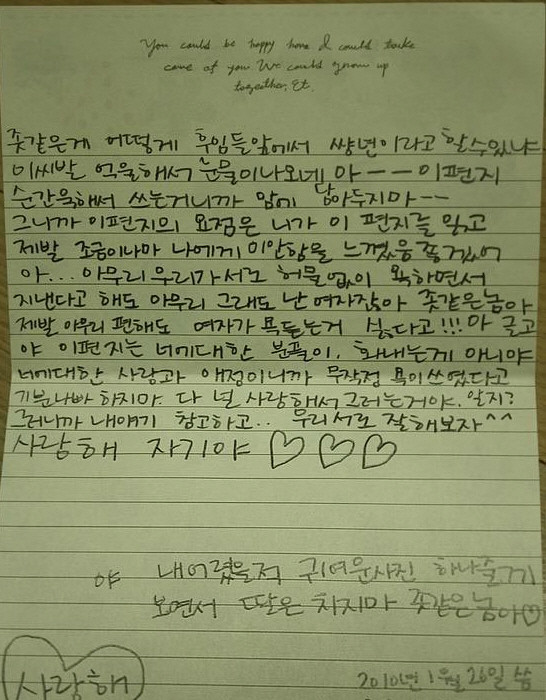 You could be happy here I could take
care of you We could grow up
together, Et.
좆같은게 어떻게 후임들앞에서 썅년이라고 할수있냐
이씨발 억울해서 눈물이나오네 아ㅡㅡ이편지
순간욱해서 쓰는거니까 맘에 담아두지마ㅡㅡ
그니까 이편지의 요점은 니가 이 편지를 읽고
제발 조금이나마 나에게 미안함을 느꼈음 좋겠어
아... 아무리우리가서로 허물없이 욕하면서
지낸다고 해도 아무리 그래도 난 여자잖아 좆같은놈아
제발 아무리 편해도 여자가 욕듣는거 싫다고!!! 아 글고
야 이편지는 너에대한 분풀이, 화내는게 아니야
너에대한 사랑과 애정이니까 무작정 욕이쓰였다고
기분나빠 하지마. 다 널 사랑해서그러는거야. 알지?
그러니까 내얘기 참고하고.. 우리서로 잘해보자^^
사랑해 자기야 ♡♡♡
야 내어렸을적 귀여운사진 하나줄
보면서 딸은 치지마 좆같은놈아♡
사랑해
2010년 1월 26일 씀